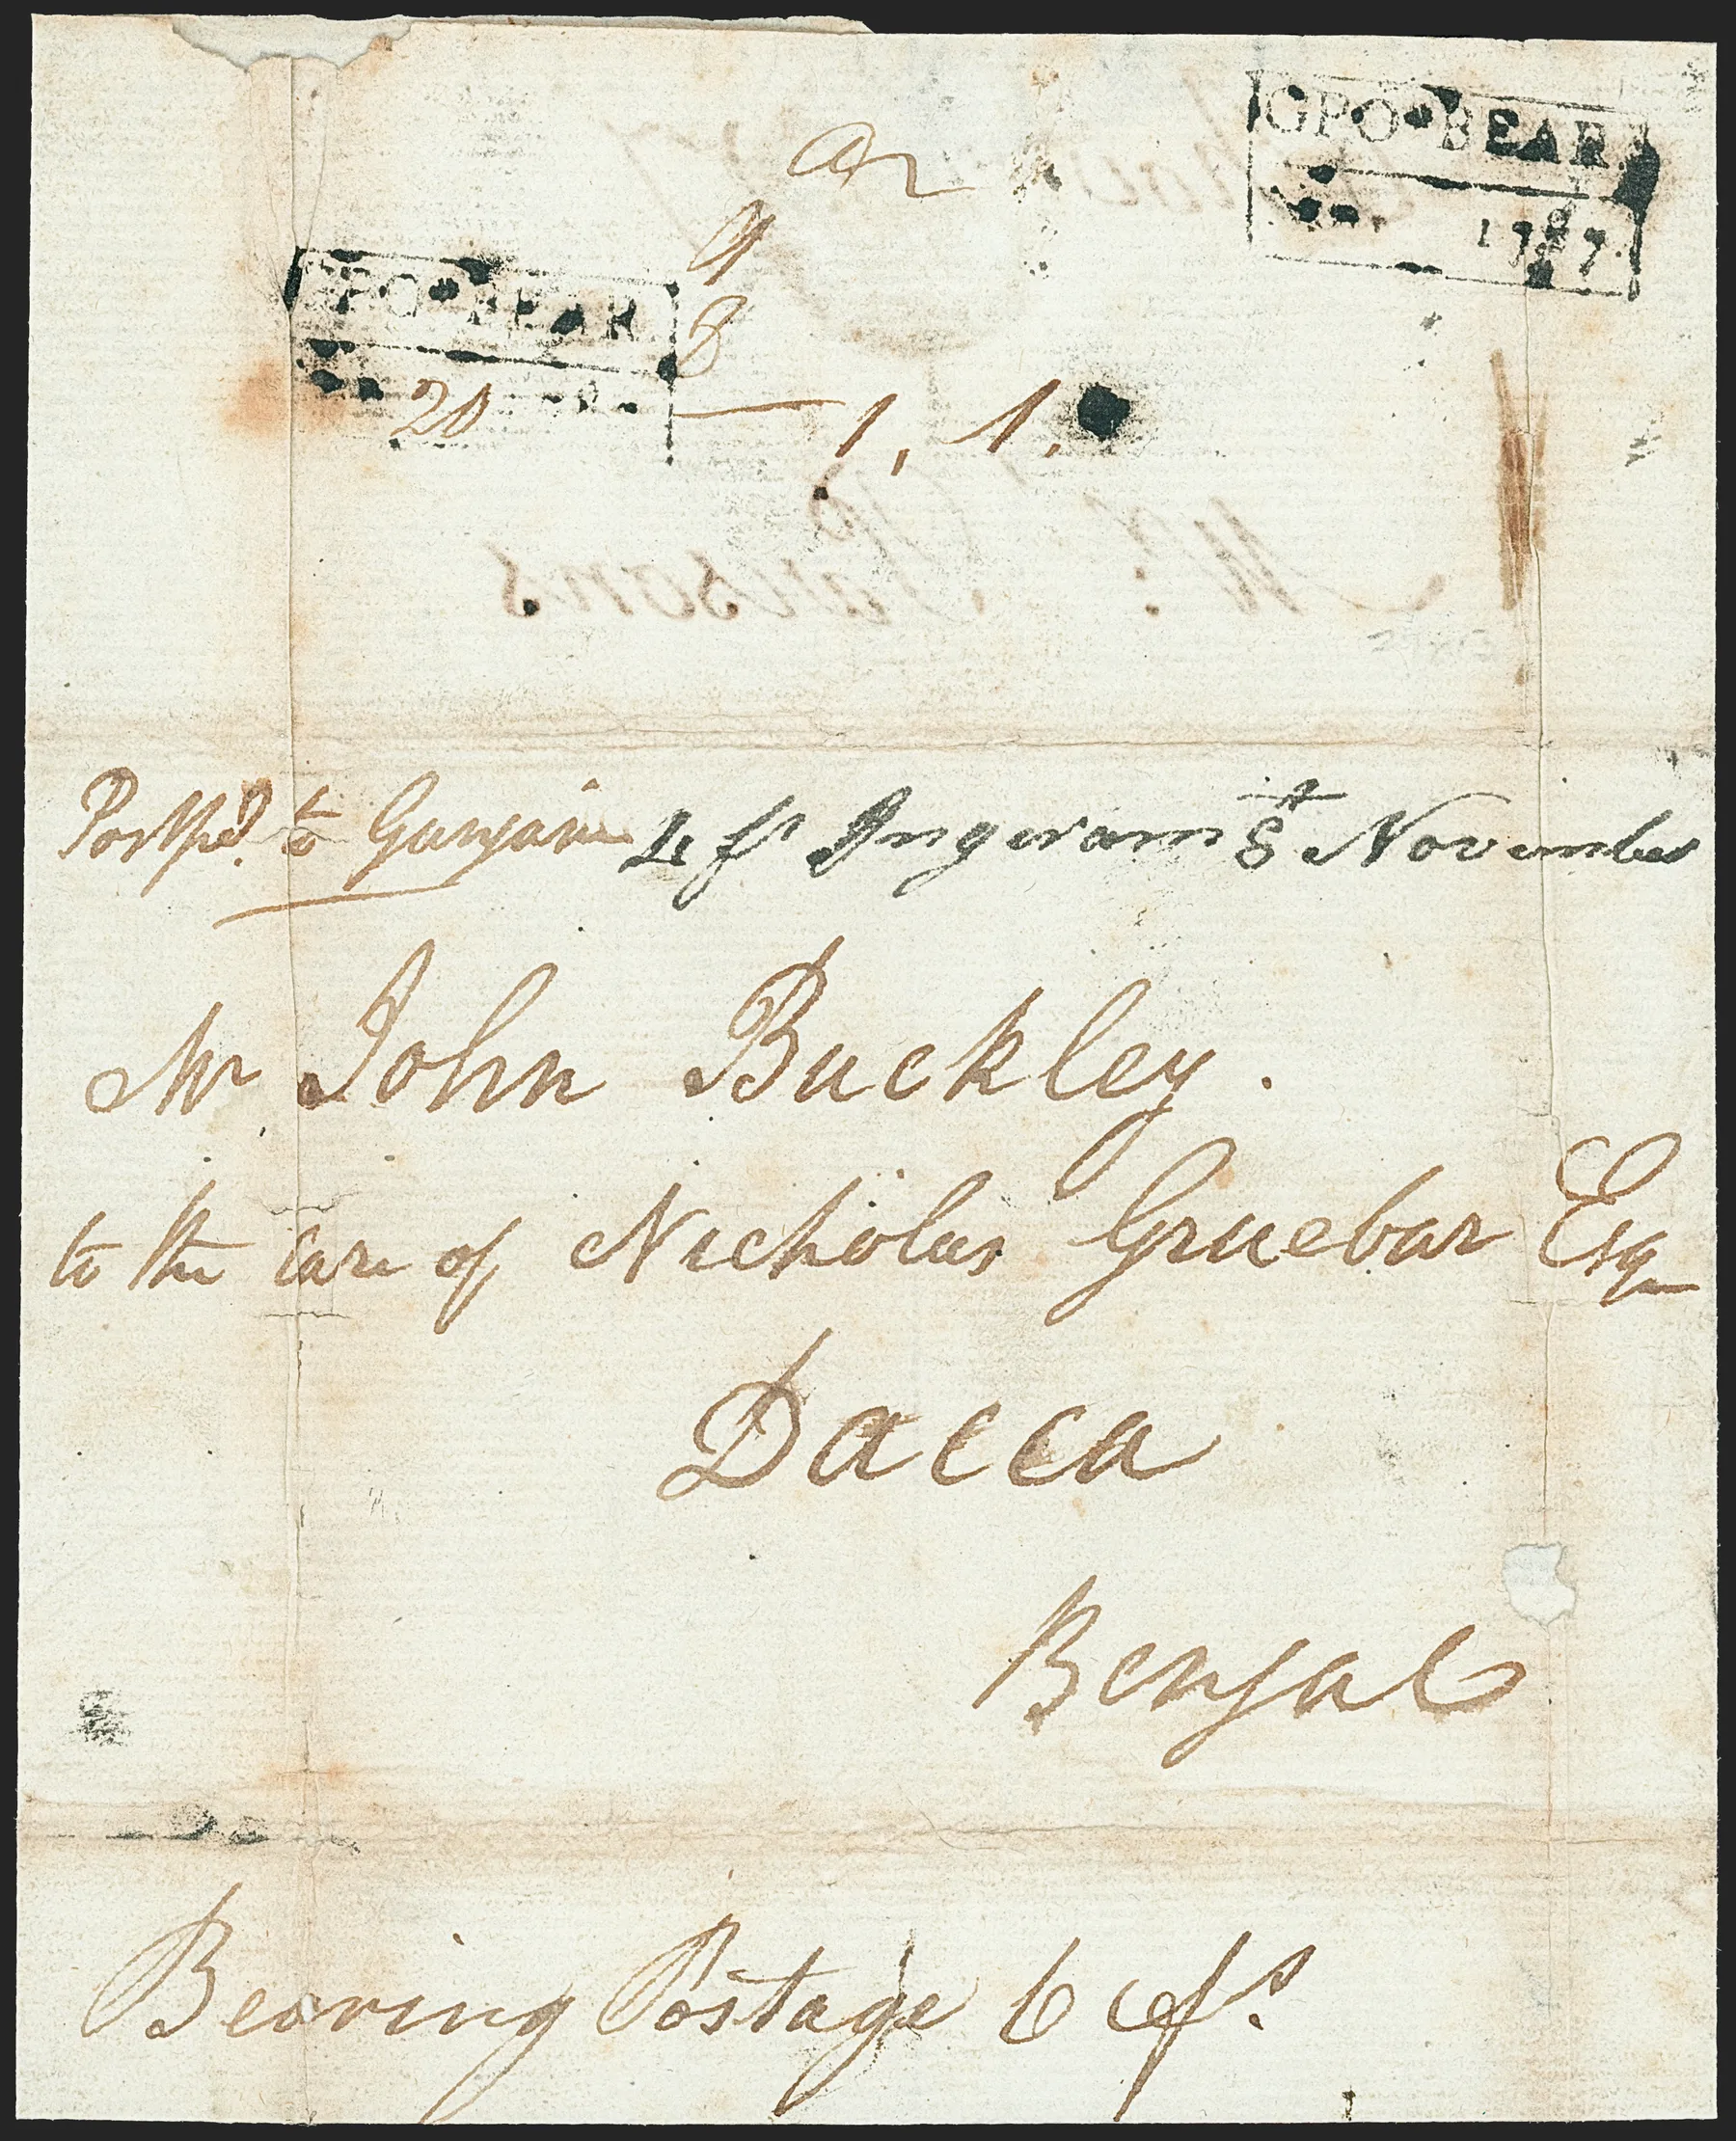 GPO BEAR
1787
ar
9
8
PO BEAR
20 — 1, 1.
Mr. Parsons
Postpd. to Ganjam Left Ingeram 8th November
Mr John Buckley.
to the care of Nicholas Gruebar Esq
Dacca
Bengal
Bearing Postage 6 as.